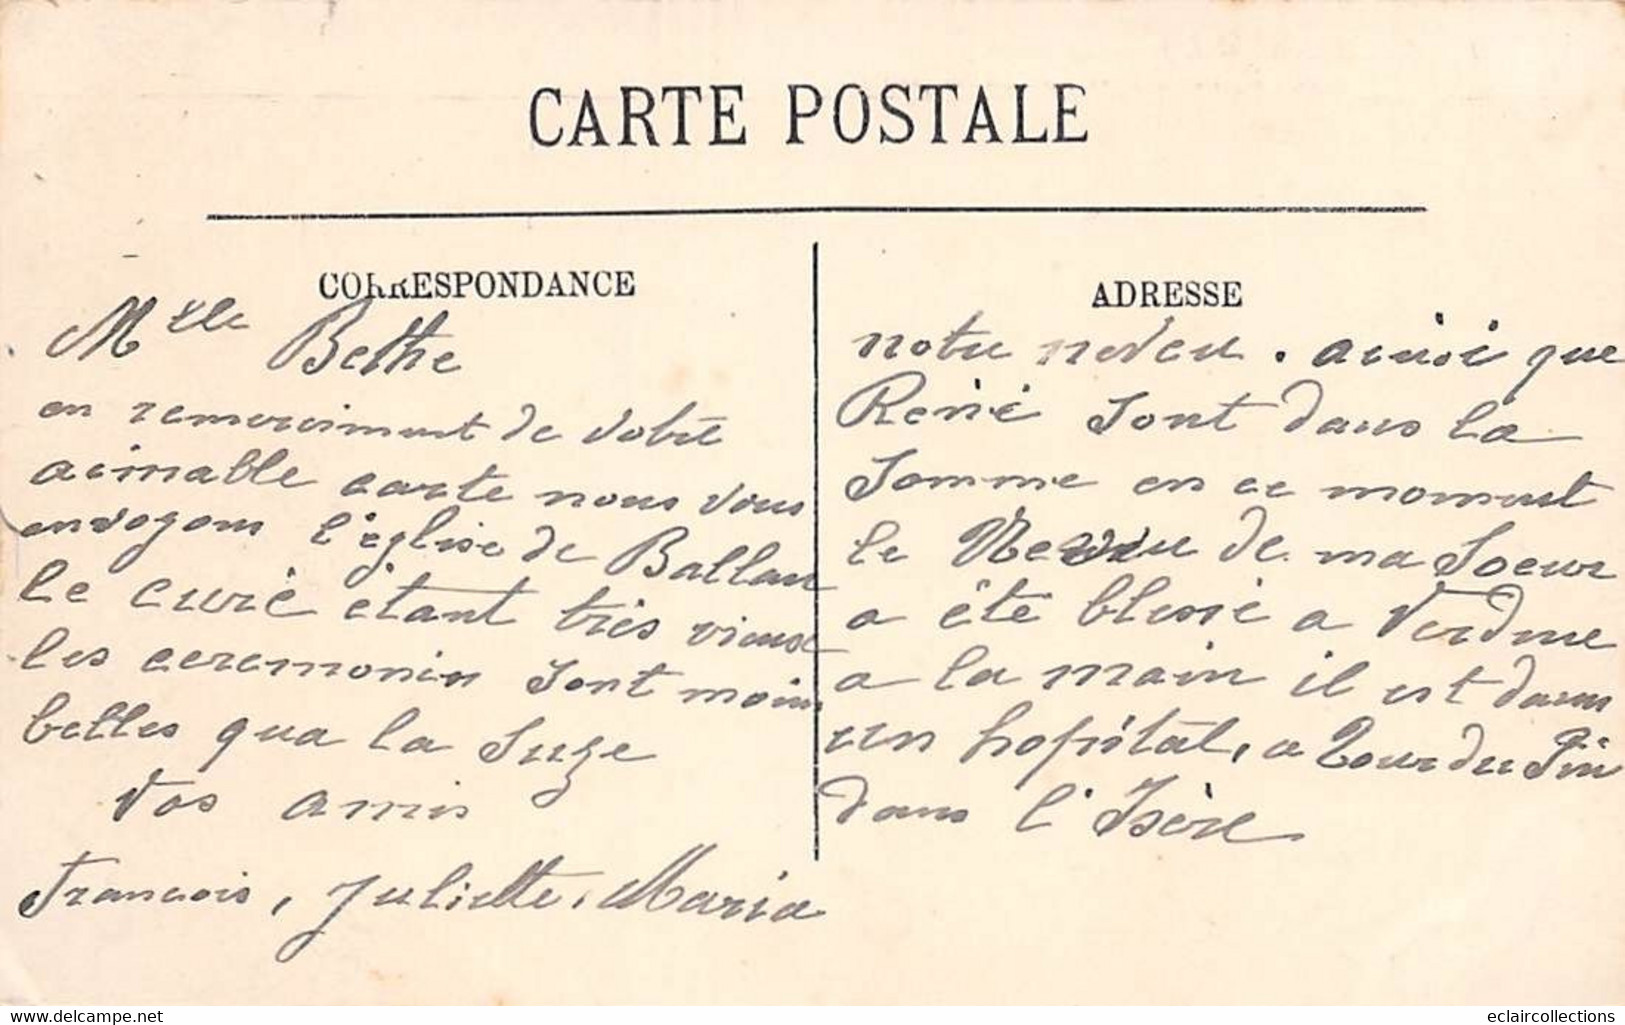 CARTE POSTALE
CORRESPONDANCE
Mlle Bethe
en remerciment de votre
aimable carte nous vous
envoyons l'église de Ballan
le curé étant très vieux
les ceremonies sont moins
belles qua la Suze
Vos amis
Francois, Juliette, Maria
ADRESSE
notre neveu. ainsi que
René sont dans la
Somme en ce moment
le Neveu de ma Soeur
a été blessé a Verdune
a la main il est dans
un hopital, a Tour du Pin
dans l'Isère
www.delcampe.net
eclaircollections